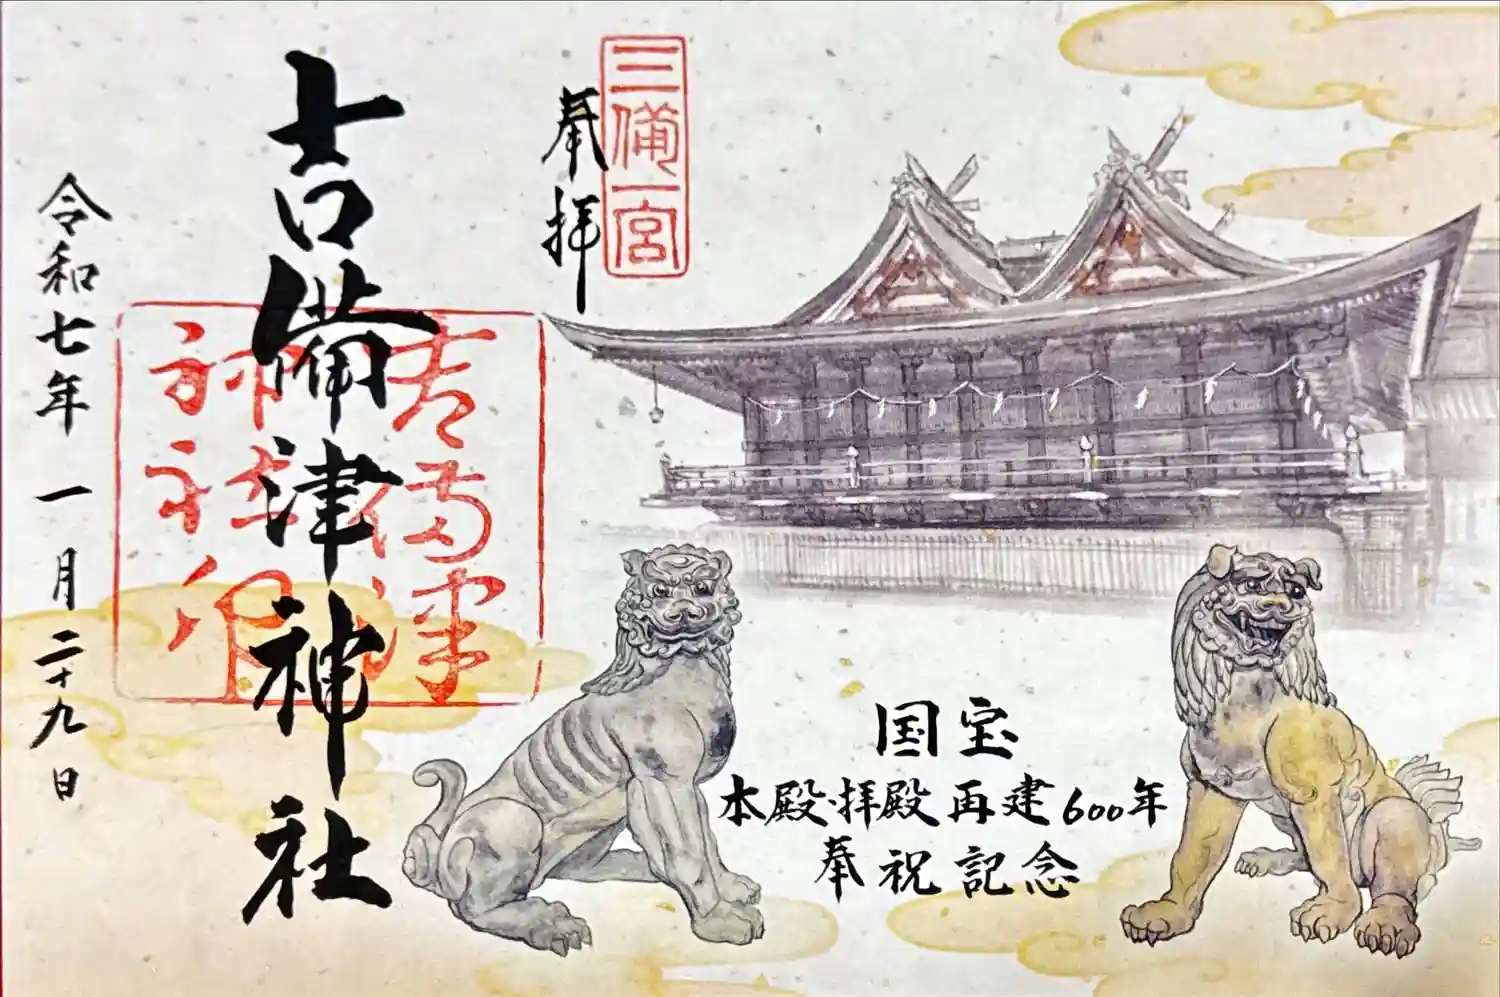 三備一宮
奉拝
吉備津神社
令和七年一月二十九日
国宝
本殿・拝殿再建600年
奉祝記念